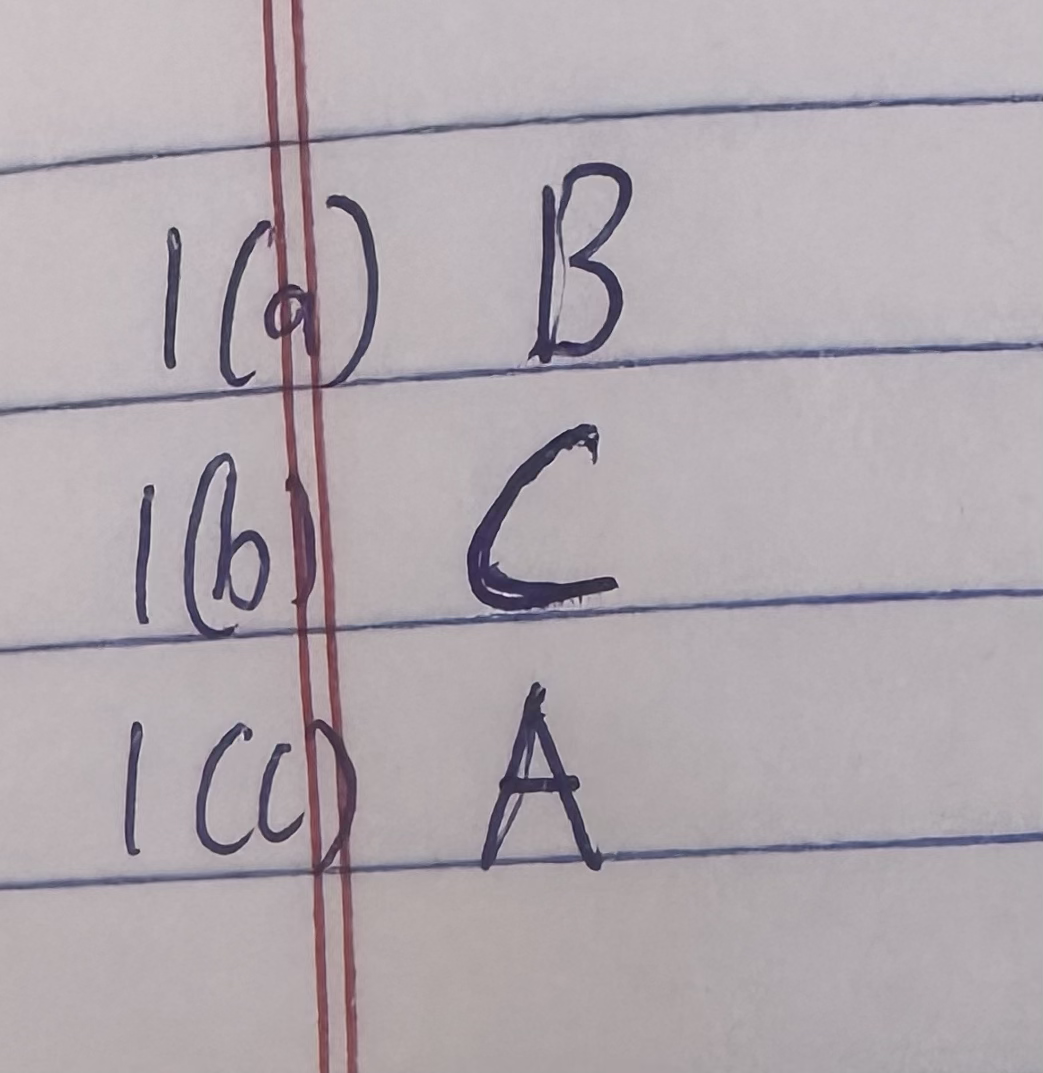 1(a) B
1(b) C
1(c) A